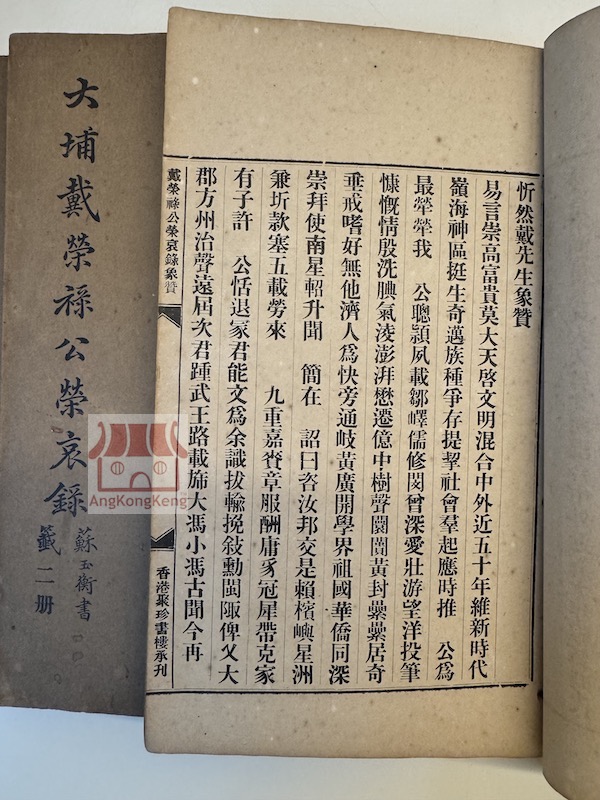 大埔戴榮祿公榮哀錄
蘇玉衡書
籤 二册
忻然戴先生象贊
易言崇高富貴莫大天啓文明混合中外近五十年維新時代
嶺海神區挺生奇邁族種爭存提挈社會羣起應時推 公爲
最犖犖我 公聰頴夙載鄒嶧儒修閔曾深愛壯游望洋投筆
慷慨情殷洗腆氣淩澎湃懋遷億中樹聲闤闠黃封纍纍居奇
垂戒嗜好無他濟人爲快旁通岐黃廣開學界祖國華僑同深
崇拜使南星軺升聞 簡在 詔曰咨汝邦交是賴檳嶼星洲
兼圻款塞五載勞來 九重嘉賚章服酬庸豸冠犀帶克家
有子許 公恬退冢君能文爲余議拔輸挽敍勳閩陬俾乂大
郡方州治聲遠屆次君踵武王路載旆大馮小馮古聞今再
戴榮祿公榮哀錄象贊
香港聚珍書樓承刊
AngKongKeng